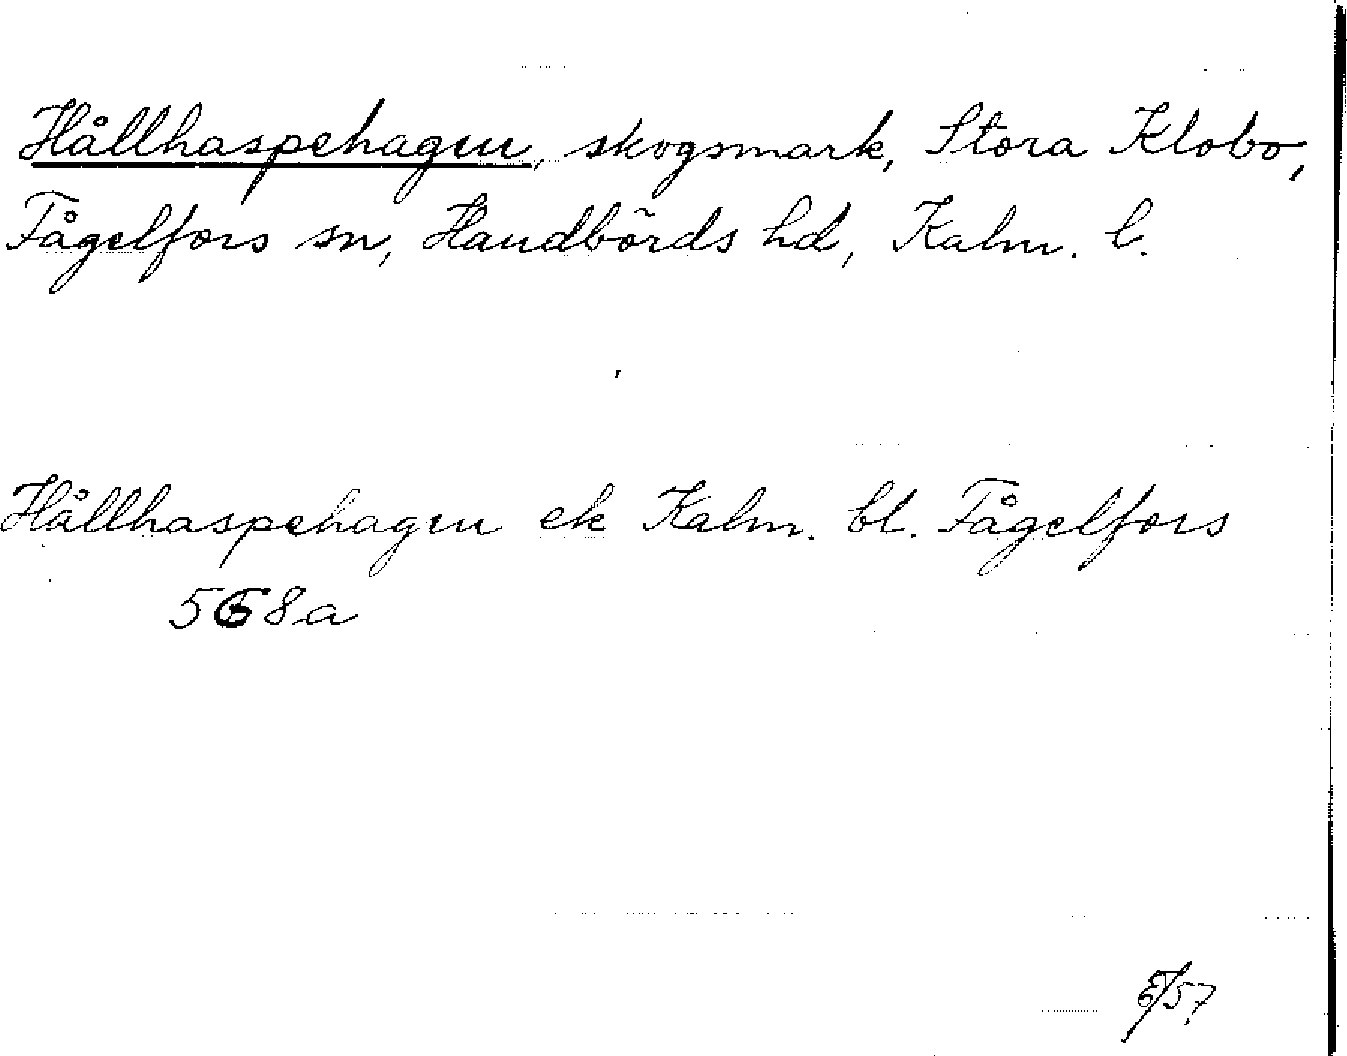 Hållhaspehagen, skogsmark, Stora Klobo,
Fågelfors sn, Handbörds hd, Kalm. l.
Hållhaspehagen ek Kalm. bl. Fågelfors
568a